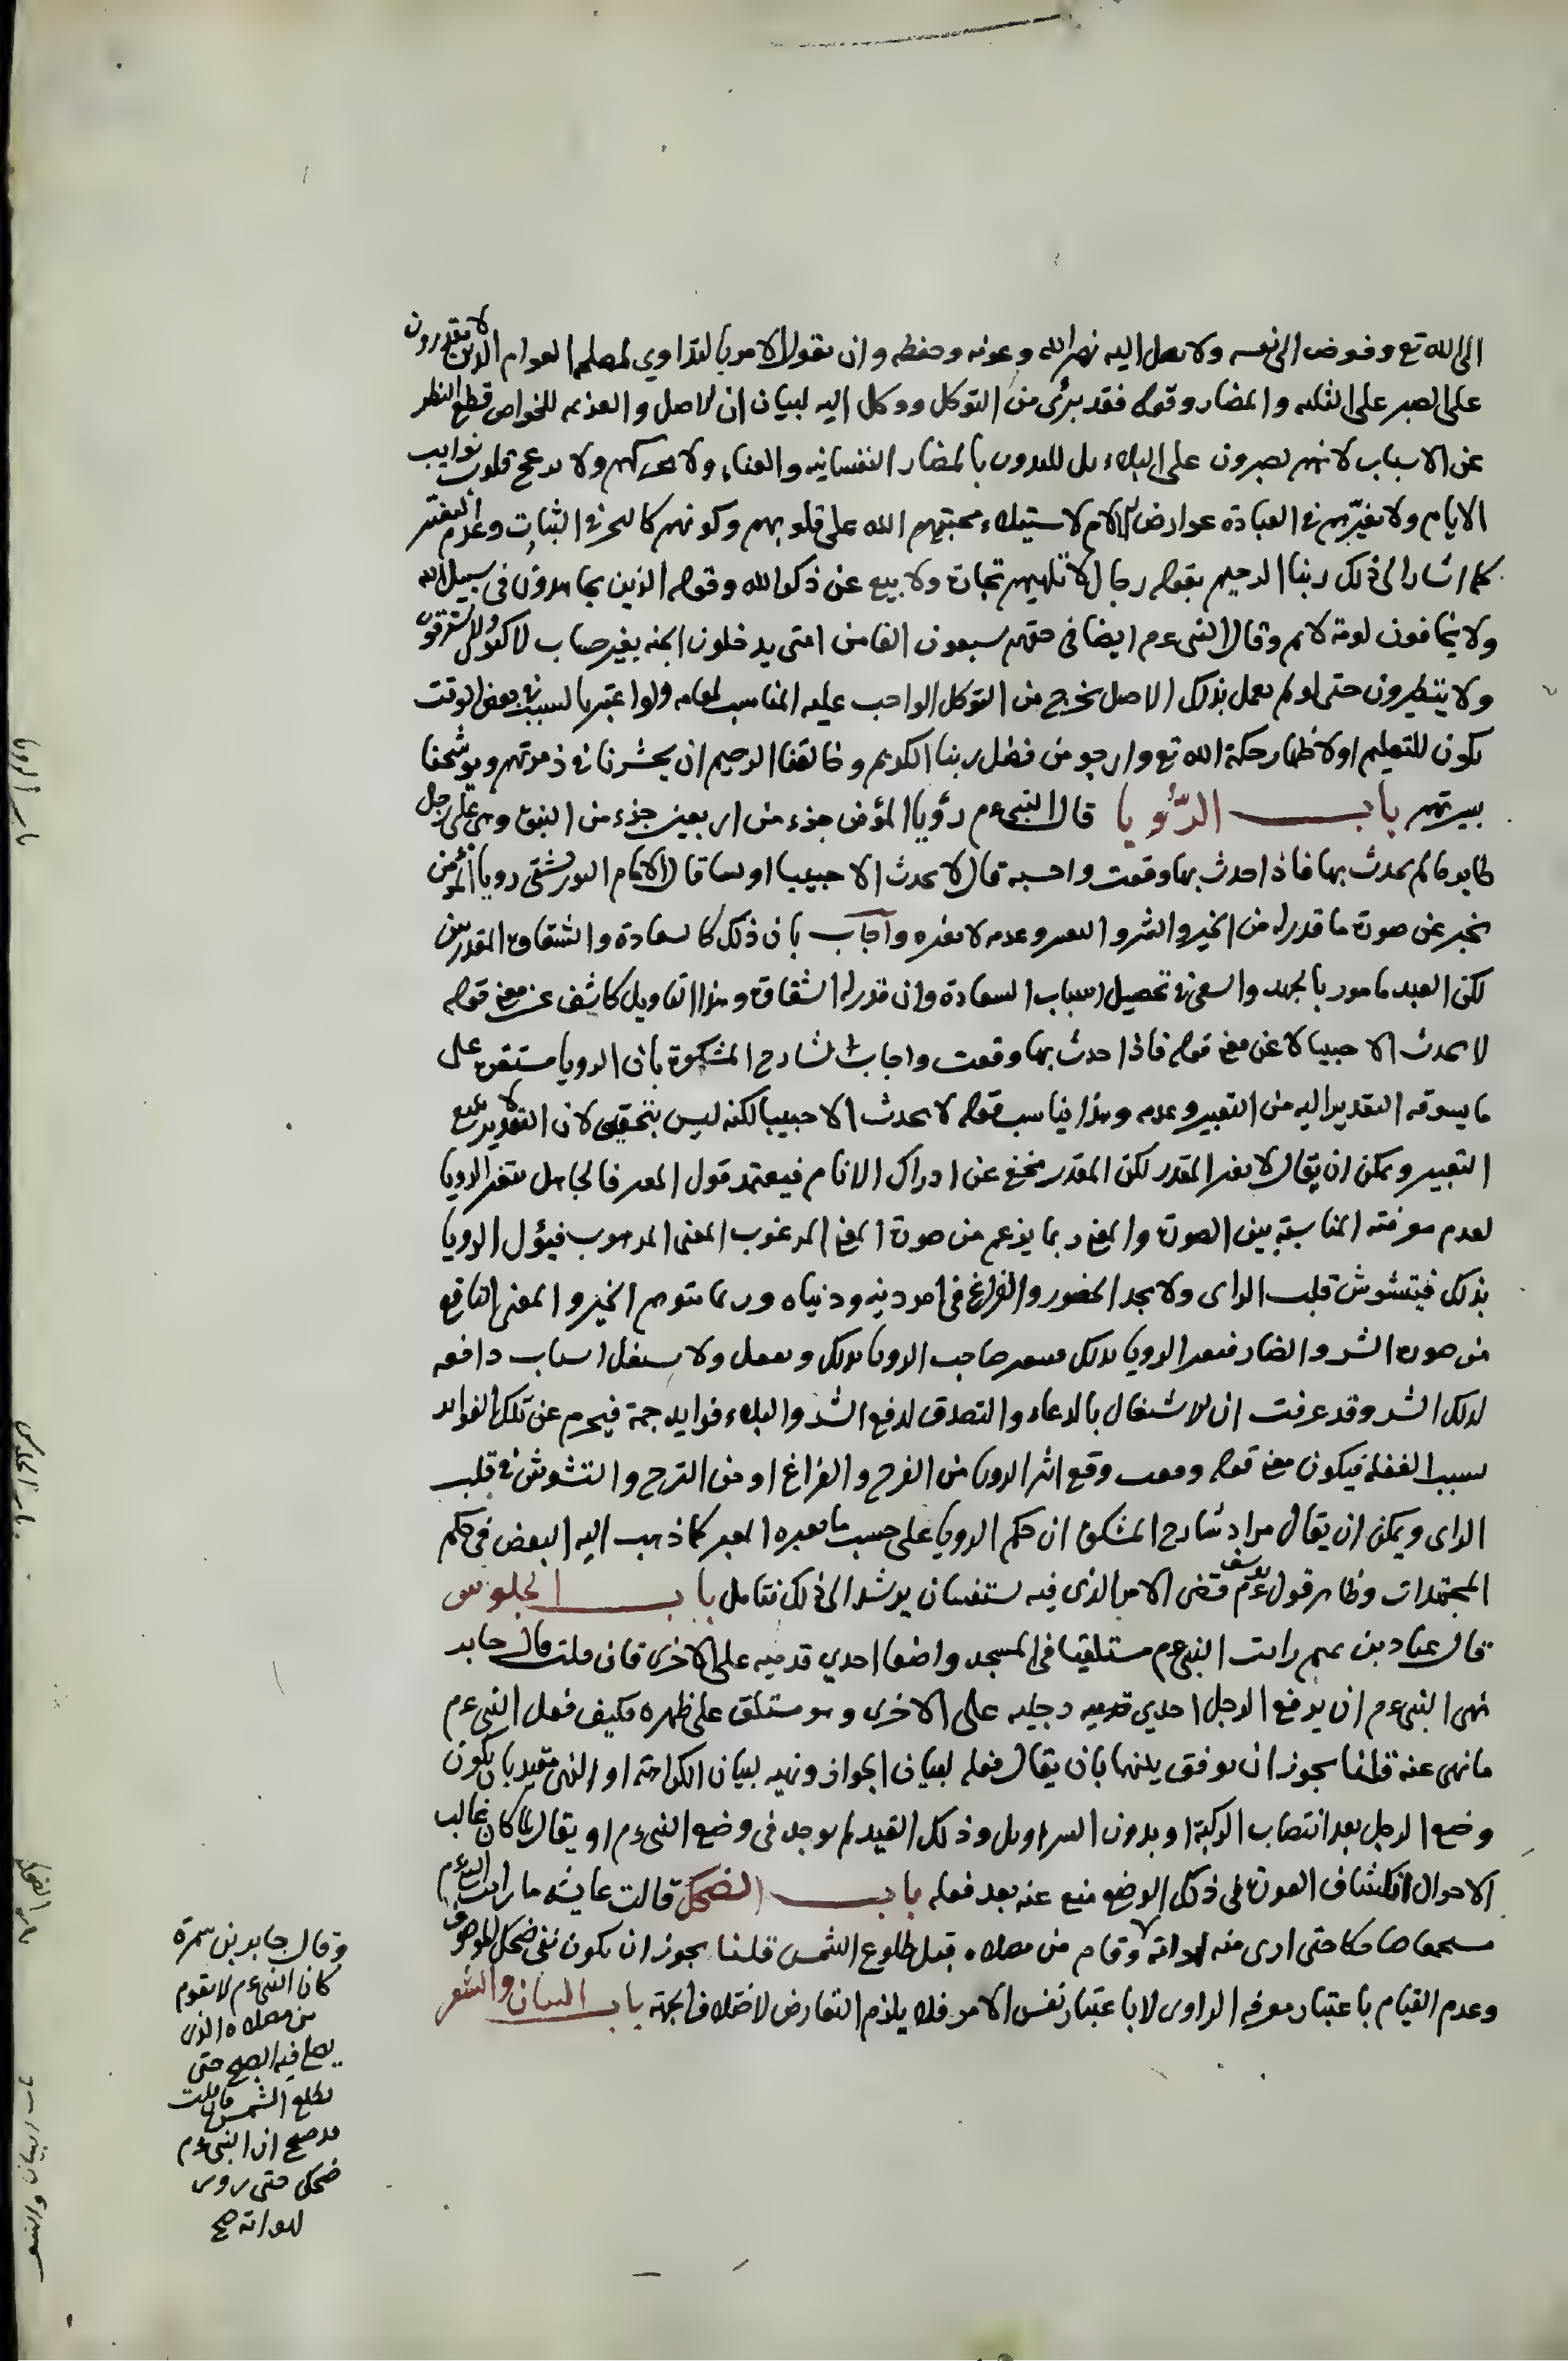 الى الله تع وفوض الى نفسه ولا يصل اليه نصر الله وعونه وحفظه وان يقول الامر بالتداوي لمصلحة العوام الذين لا يقدرون
على الصبر على النكبه والمضار وقوله فقد برئ من التوكل ووكل اليه لبيان ان الاصل والعزيمه للخواص قطع النظر
عن الاسباب لانهم يصبرون على البلاء بل يتلذذون بالمضار النفسانيه والعناء ولا ولا يزعج قلوب نوايب
الايام ولا يغيرهم في العبادة عوارض الالام لاستيلاء محبتهم الله على قلوبهم وكونهم كالبحر في الثبات وعدم التغير
كما اشار الى ذلك ربنا الرحيم بقوله رجال لا تلهيهم تجارة ولا بيع عن ذكر الله وقوله الذين يجاهدون في سبيل الله
ولا يخافون لومة لائم وقال النبي ءم ايضا في حقهم سبعون الفا من امتى يدخلون الجنه بغير حساب لا يكتوون ولا يسترقون
ولا يتطيرون حتى لو لم يعمل بذلك الاصل يخرج من التوكل الواجب عليه المناسب لمقامه ولو اعتبر بالسبب في بعض الوقت
يكون للتعليم او لاظهار حكمة الله تع وارجو من فضل ربنا الكريم وخالقنا الرحيم ان يحشرنا في زمرتهم ويوشحنا
بسيرتهم باب الرؤيا قال النبي ءم رؤيا المؤمن جزء من اربعين جزء من النبوة وهي على رجل
طاير ما لم يحدث بها فاذا حدث بها وقعت واحسبه قال لا يحدث الا حبيبا او لبيبا قال الامام التوربشتى رويا المؤمن
يخبر عن صورة ما قدر له من الخير والشر والتعبير وعدمه لا يغيره واجاب بان ذلك كالسعادة والشقاوة المقدرين
لكن العبد مامور بالجهد والسعى في تحصيل اسباب السعادة وان قدر له الشقاوة وهذا التاويل كاشف عن معنى قوله
لا يحدث الا حبيبا لا عن معنى قوله فاذا حدث بها وقعت واجاب شارح المشكوة بان الرويا مستقرة على
ما يسوقه التقدير اليه من التعبير وعدمه وهذا يناسب قوله لا يحدث الا حبيبا لكنه ليس بتحقيق لان التقدير لا يمنع
التعبير ويمكن ان يقال لا يغير المقدر لكن المقدر مخفى عن ادراك الانام فيعتمد قول المعبر فالجاهل بتعبير الرويا
لعدم معرفته المناسبة بين الصورة والمعنى ربما يزعم من صورة المعنى المرغوب المعنى المرهوب فيؤل الرويا
بذلك فيتشوش قلب الراى ولا يجد الحضور والفراغ في امر دينه ودنياه وربما يتوهم الخير والمعنى النافع
من صورة الشر والضار فيعبر الرويا بذلك صاحب الرويا بذلك ويغفل ولا يشتغل اسباب دافعه
لذلك الشر وقد عرفت ان لاشتغال بالدعاء والتصدق لدفع الشر والبلاء فوايد جمة فيحرم عن تلك الفوايد
بسبب الغفلة فيكون معنى قوله وقعت وقع اثر الرويا من الفرح والفراغ او من الترح والتشوش في قلب
الراى ويمكن ان يقال مراد شارح المشكوة ان حكم الرويا على حسب ما يعبره المعبر كما ذهب اليه البعض في حكم
المجتهدات وظاهر قول يوسف ءم قضى الامر الذى فيه تستفتيان يرشد الى ذلك فتامل باب الجلوس
قال عباد بن تميم رايت النبي ءم مستلقيا في المسجد واضعا احدي قدميه على الاخرى فان قلت قال جابر
نهى النبي ءم ان يرفع الرجل احدي رجليه على الاخرى وهو مستلق على ظهره فكيف فعل النبي ءم
ما نهى عنه قلنا يجوز ان يوفق بينهما بان يقال فعله لبيان الجواز ونهيه لبيان الكراهة او النهى مقيد بان يكون
وضع الرجل بعد انتصاب الركبة او بدون السراويل وذلك القيد لم يوجد في وضع النبي ءم او يقال لما كان غالب
الاحوال انكشاف العورة في ذلك الوضع منع عنه بعد فعله باب الضحك قالت عايشه ما رايت النبي ءم
مستجمعا ضاحكا حتى ارى منه لهواته وقام من مصلاه قبل طلوع الشمس قلنا يجوز ان يكون نفى ضحك الموصوف
وعدم القيام باعتبار معرفة الراوى لا باعتبار نفس الامر فلا يلزم التعارض لاختلاف الجهة باب البيان والشعر
وقال جابر بن سمرة
كان النبي ءم لا يقوم
من مصلاه الذى
يصلى فيه الصبح حتى
يطلع الشمس فان قلت
قد صح ان النبي ءم
ضحك حتى
لهواته صح
باب الرويا
باب الجلوس
باب الضحك
والشعر